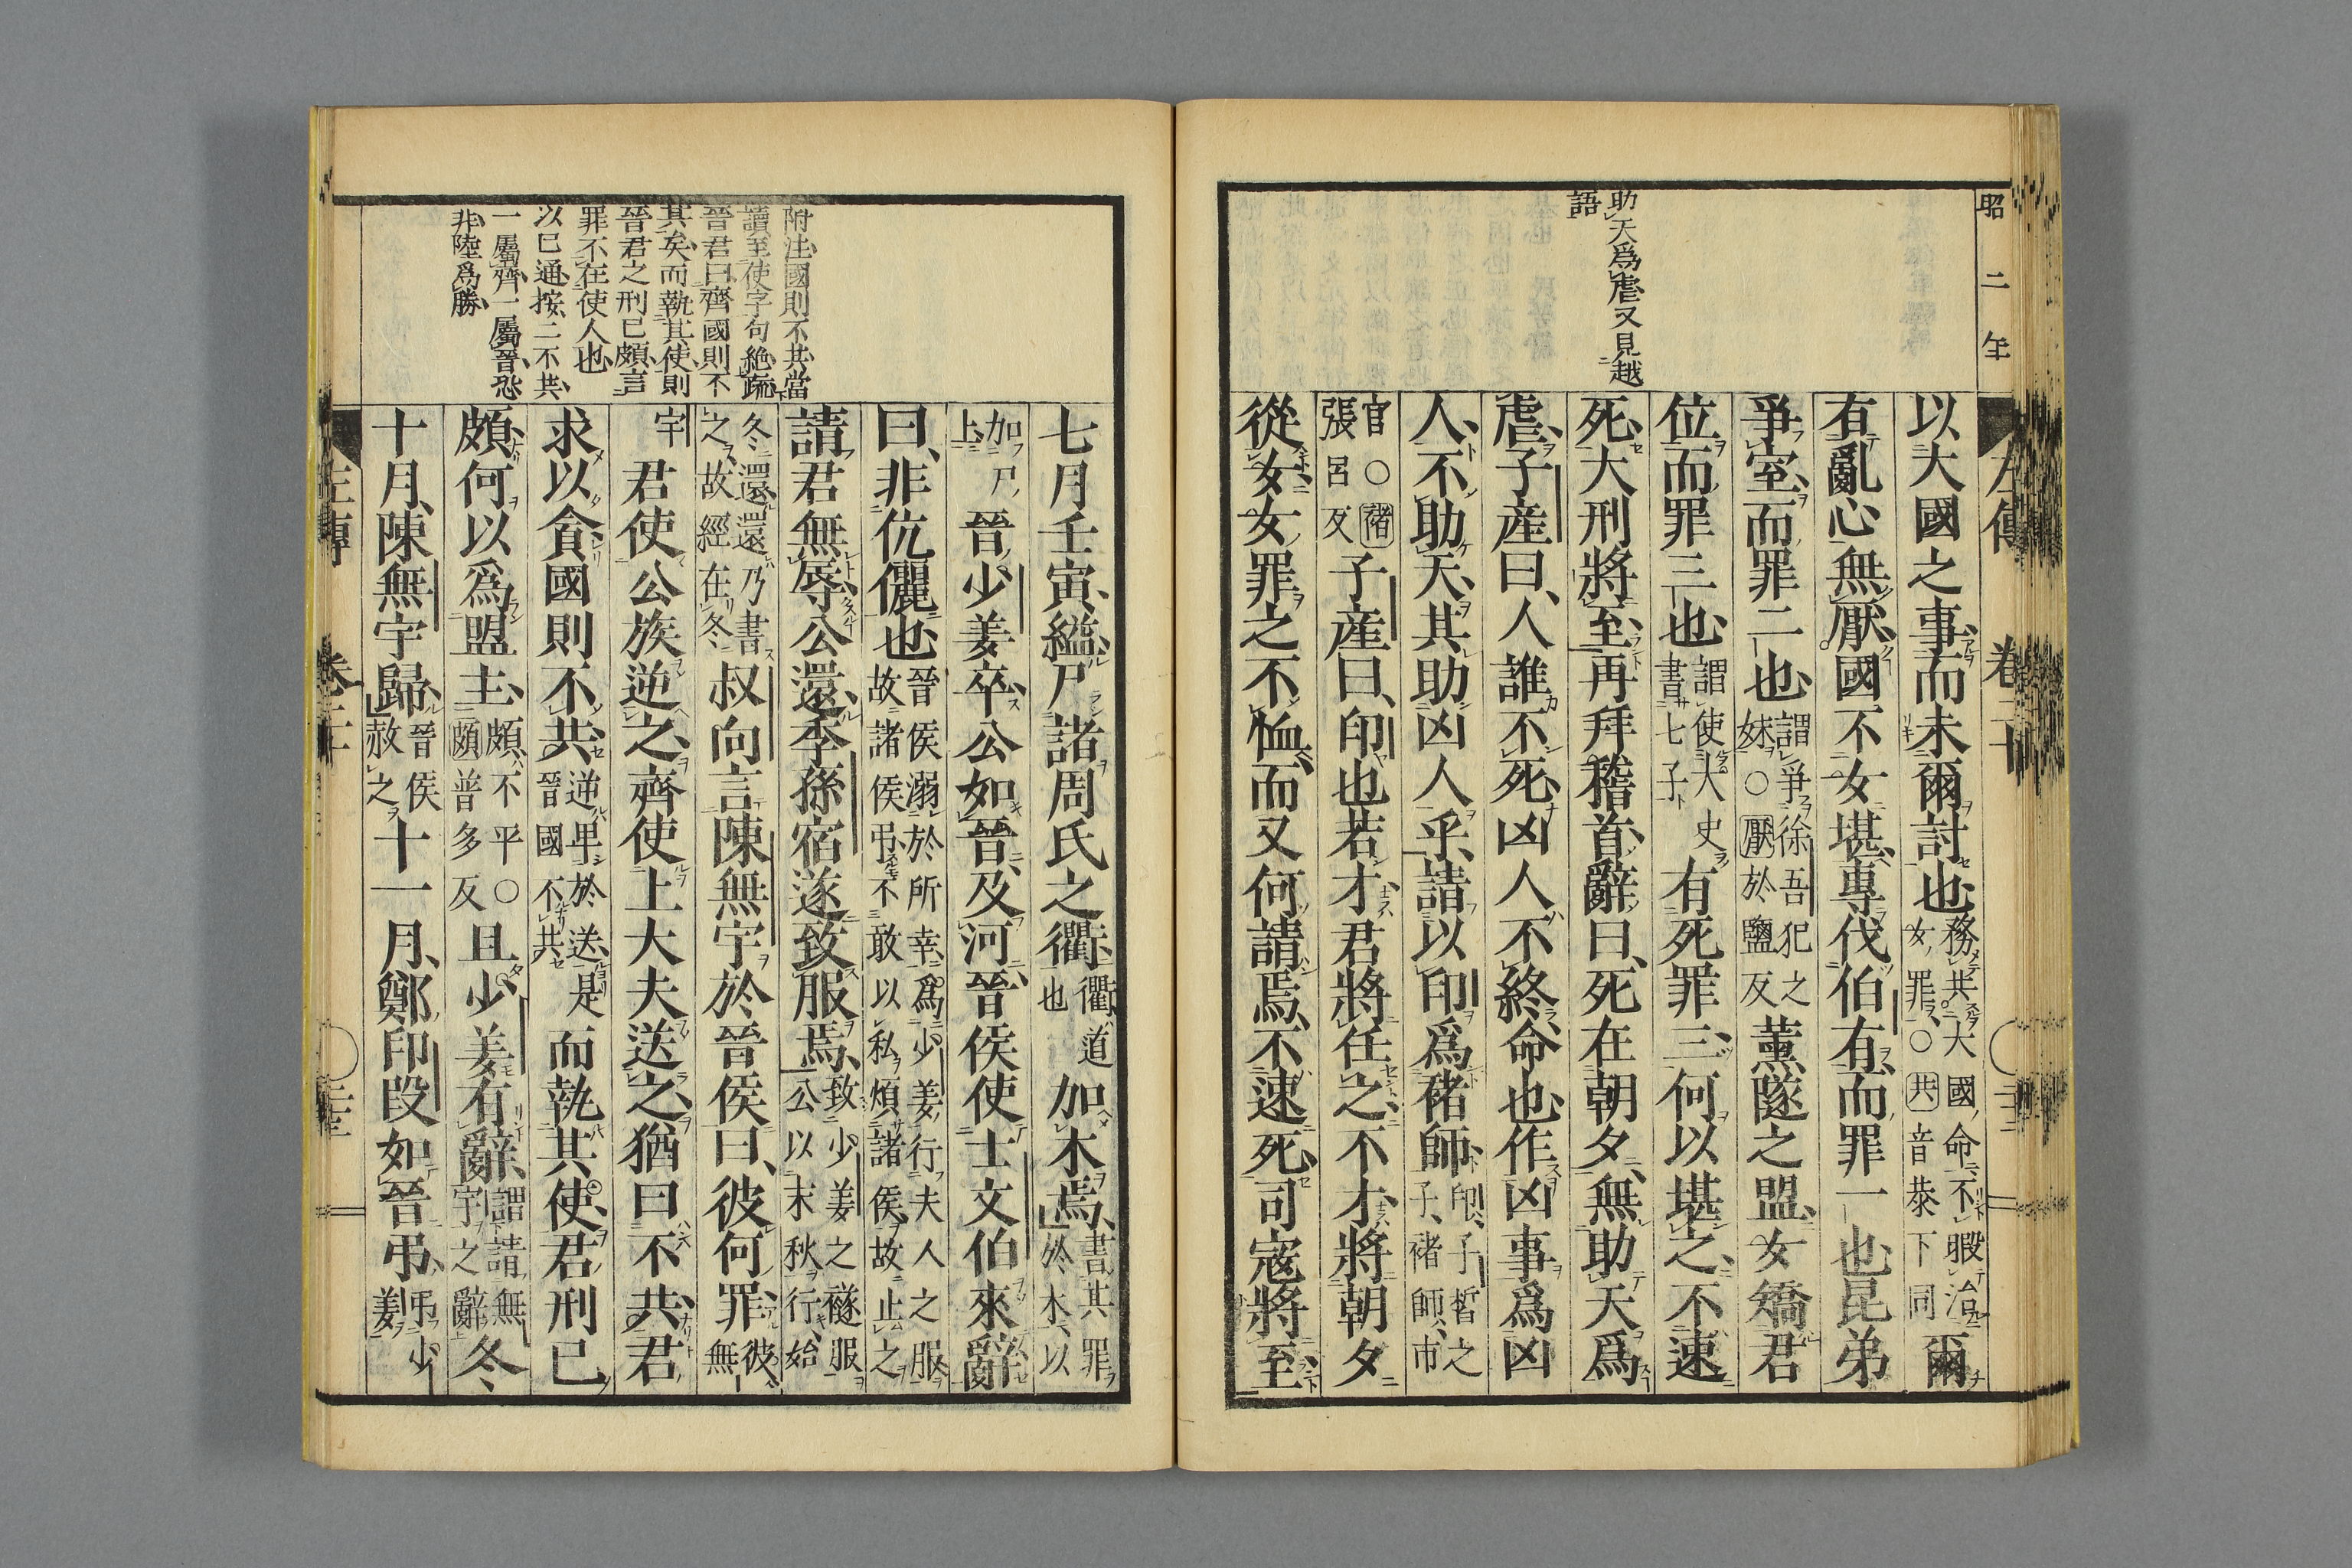 昭二年
助天爲虐又見越
語
以大國之事而未爾討也務共大國命不暇治爾
女罪○共音恭下同
有亂心無厭國不女堪專伐伯有而罪一也昆弟
爭室而罪二也謂爭徐吾犯之
妹○厭於鹽反薰隧之盟女矯君
位而罪三也謂使大史
書七子有死罪三何以堪之不速
死大刑將至再拜稽首辭曰死在朝夕無助天爲
虐子産曰人誰不死凶人不終命也作凶事爲凶
人不助天其助凶人乎請以印爲褚師印子晳之
子褚師市
官○褚
張呂反子産曰印也若才君將任之不才將朝夕
從女女罪之不恤而又何請焉不速死司寇將至
附注國則不共當
讀至使字句絶疏
晉君曰齊國則不
其矣而執其使則
晉君之刑已頗言
罪不在使人也
以巳通按二不共
一屬齊一屬晉恐
非陸爲勝
七月壬寅縊尸諸周氏之衢衢道
也加木焉書其罪
於木以
加尸
上晉少姜卒公如晉及河晉侯使士文伯來辭
曰非伉儷也晉侯溺於所幸爲少姜行夫人之服
故諸侯弔不敢以私煩諸侯故止之
請君無辱公還季孫宿遂致服焉致少姜之襚服
公以末秋行始
冬還還乃書
之故經在冬叔向言陳無宇於晉侯曰彼何罪彼
無
宇君使公族逆之齊使上大夫送之猶曰不共君
求以貪國則不共逆卑於送是
晉國不共而執其使君刑已
頗何以爲盟主頗不平○
頗普多反且少姜有辭謂請無
宇之辭冬
十月陳無宇歸晉侯
赦之十一月鄭印段如晉弔弔少
姜